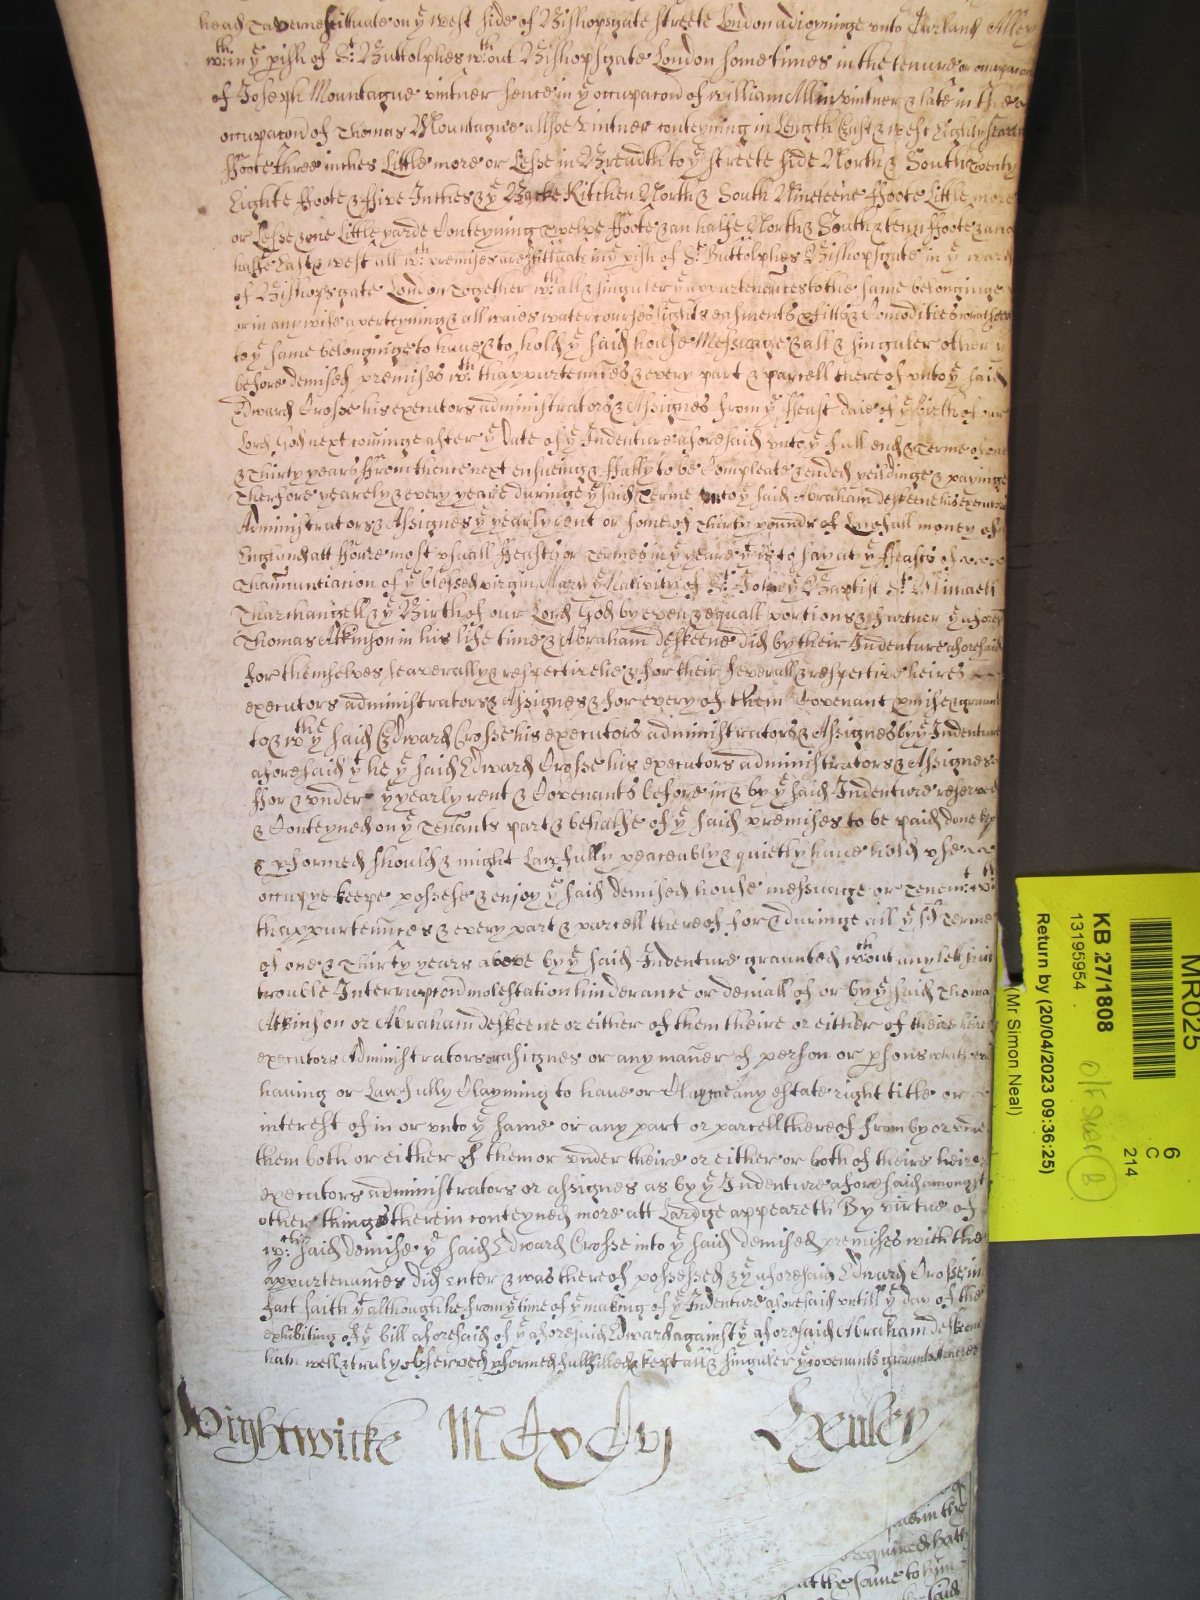 head Taverne scituate on ye west side of Bishopsgate streete London adioyninge vnto Alley
wth:in ye pish of St: Buttolphes wth:out Bishopsgate London sometimes in the tenure or occupacon
of Joseph Mountague vintner sence in ye occupacon of William Allin vintner & late in the
occupacon of Thomas Mountague allsoe vintner conteyning in Length East & west Eighty seaven
ffoote three inches Little more or Lesse in Breadth to ye streete side North & South Twenty
Eighte ffoote & ffive Inches & ye Backe Kitchen North & South Nineteene ffoote Little more
or Lesse & one Little yarde Conteyning Twelve ffoote & an halfe North & South & tenn ffoote & an
halfe East & west all wch: premises are scittuate in ye pish of St: Buttolphes Bishopsgate in ye ward
of Bishopsgate London Together wth: all & singuler ye appurtenences to the same belonginge
or in any wise apperteyning & all waies watercourses lights easments pfitts & Comodities whatsoever
to ye same belonginge to haue & to hold ye said house Messuage & all & singuler other ye
before demised premises wth: thappurtennces & every part & parcell thereof vnto ye said
Edward Crosse his executors administrators & Assignes from ye ffeast daie of ye birth of our
Lord God next cominge after ye date of ye Indenture aforesaid vnto ye full end & Terme of one
& Thirty years ffrom thence next ensueing & ffully to be Compleate & ended yeildinge & payinge
Therfore yearely & every yeare duringe ye said Terme vnto ye said Abraham deskeene his executors
Administrators & Assignes ye yearly rent or some of Thirty pounds of Lawfull money of
England att ffoure most vsuall ffeasts or Termes in ye yeare yt is to say at ye ffeasts of
Thannunciation of ye blessed virgin Mary ye Nativity of St: John ye Baptist St: Michaell
Tharchangell & ye Birth of our Lord God by even & equall portions & further ye aforesd
Thomas Atkinson in his life time & Abraham deskeene did by their Indenture aforesaid
for themselves seaverally & respectivelie & for their severall & respective heires
executors administrators & Assignes & for every of them Covenant pmise & graunt
to & wth ye said Edward Crosse his executors administrators & Assignes by ye Indenture
aforesaid yt he ye said Edward Crosse his executors administrators & Assignes
ffor & vnder ye yearly rent & Covenants before in & by ye said Indenture reserved
& Conteyned on ye Tenants part & behalfe of ye said premises to be paid done kept
& pformed should & might Lawfully peaceably & quietly haue hold vse
occupye keepe possesse & enjoy ye said demised house messuage or Tenemt: wth:
thappurtennces & every part & parcell thereof for & duringe all ye sd Terme
of one & Thirty years above by ye said Indenture graunted wth:out any lett suit
trouble Interrupcon molestation hinderance or deniall of or by ye said Thomas
Atkinson or Abraham deskeene or either of them theire or either of theire heires
executors Administrators or assignes or any maner of person or psons whatsoever
having or Lawfully Clayming to haue or Clayme any estate right title or
interest of in or vnto ye same or any part or parcell thereof from by or vnder
them both or either of them or vnder theire or either or both of theire heires
executors administrators or assignes as by ye Indenture aforesaid amongst
other things therein conteyned more att Lardge appeareth By virtue of
wch: said demise ye said Edward Crosse into ye said demised premises with the
appurtenances did enter & was thereof possessed & ye aforesaid Edward Crosse in
fact saith yt although he from ye time of ye making of ye Indenture aforesaid vntill ye day of the
exhibiting of ye bill aforesaid of ye aforesaid Edward against ye aforesaid Abraham deskeene
hath well & truly observed pformed fullfilled & kept all & singuler ye covenants graunts
Wightwicke Henley
in the
required hath
at the same to him
said
MR025
6
C
214
KB 27/1808
13195954
Return by (20/04/2023 09:36:25)
(Mr Simon Neal)
B